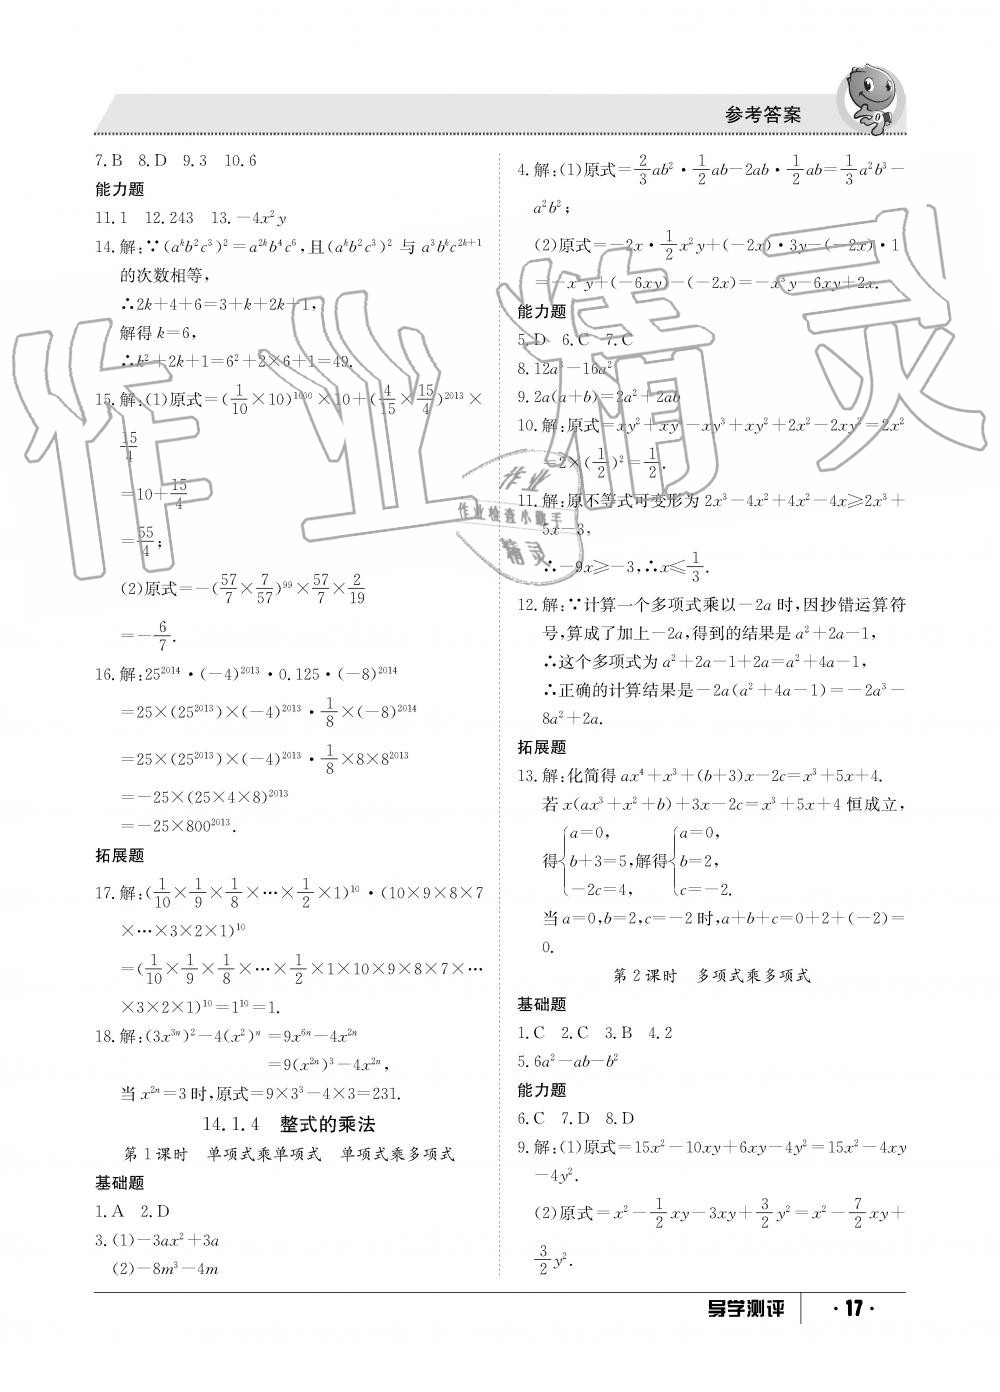 参考答案
7.B 8.D 9.3 10.6
能力题
11.1 12.243 13.-4x²y
14.解:∵(aᵏb²c³)²=a²ᵏb⁴c⁶,且(aᵏb²c³)² 与 a³bᵏc²ᵏ⁺¹
的次数相等,
∴2k+4+6=3+k+2k+1,
解得 k=6,
∴k²+2k+1=6²+2×6+1=49.
15.解:(1)原式=(1/10×10)¹⁰⁰⁰×10+(4/15×15/4)²⁰¹³×
15/4
=10+15/4
=55/4;
(2)原式=-(57/7×7/57)⁹⁹×57/7×2/19
=-6/7.
16.解:25²⁰¹⁴·(-4)²⁰¹³·0.125·(-8)²⁰¹⁴
=25×(25²⁰¹³)×(-4)²⁰¹³·1/8×(-8)²⁰¹⁴
=25×(25²⁰¹³)×(-4)²⁰¹³·1/8×8×8²⁰¹³
=-25×(25×4×8)²⁰¹³
=-25×800²⁰¹³.
拓展题
17.解:(1/10×1/9×1/8×…×1/2×1)¹⁰·(10×9×8×7
×…×3×2×1)¹⁰
=(1/10×1/9×1/8×…×1/2×1×10×9×8×7×…
×3×2×1)¹⁰=1¹⁰=1.
18.解:(3x³ⁿ)²-4(x²)ⁿ =9x⁶ⁿ-4x²ⁿ
=9(x²ⁿ)³-4x²ⁿ,
当 x²ⁿ=3时,原式=9×3³-4×3=231.
14.1.4 整式的乘法
第1课时 单项式乘单项式 单项式乘多项式
基础题
1.A 2.D
3.(1)-3ax²+3a
(2)-8m³-4m
4.解:(1)原式=2/3ab²·1/2ab-2ab·1/2ab=1/3a²b³-
a²b²;
(2)原式=-2x·1/2x²y+(-2x)·3y-(-2x)·1
=-x³y+(-6xy)-(-2x)=-x³y-6xy+2x.
能力题
5.D 6.C 7.C
8.12a³-16a²
9.2a(a+b)=2a²+2ab
10.解:原式=xy²+xy³-xy³+xy²+2x²-2xy²=2x²
=2×(1/2)²=1/2.
11.解:原不等式可变形为2x³-4x²+4x²-4x≥2x³+
5x-3,
∴-9x≥-3,∴x≤1/3.
12.解:∵计算一个多项式乘以-2a时,因抄错运算符
号,算成了加上-2a,得到的结果是a²+2a-1,
∴这个多项式为a²+2a-1+2a=a²+4a-1,
∴正确的计算结果是-2a(a²+4a-1)=-2a³-
8a²+2a.
拓展题
13.解:化简得ax⁴+x³+(b+3)x-2c=x³+5x+4.
若x(ax³+x²+b)+3x-2c=x³+5x+4恒成立,
a=0, a=0,
得 b+3=5,解得 b=2,
-2c=4, c=-2.
当a=0,b=2,c=-2时,a+b+c=0+2+(-2)=
0.
第2课时 多项式乘多项式
基础题
1.C 2.C 3.B 4.2
5.6a²-ab-b²
能力题
6.C 7.D 8.D
9.解:(1)原式=15x²-10xy+6xy-4y²=15x²-4xy
-4y².
(2)原式=x²-1/2xy-3xy+3/2y²=x²-7/2xy+
3/2y².
导学测评 ·17·
作业精灵
作业
作业检查小助手
精灵